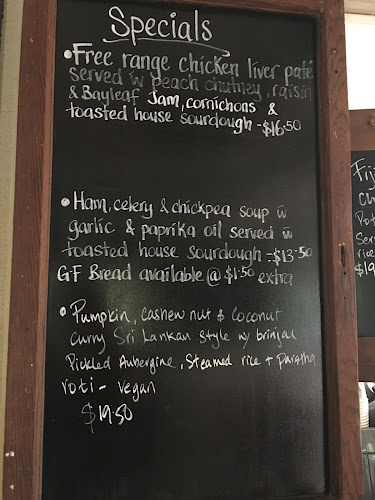 Specials
• Free range chicken liver paté
served w peach chutney, raisin
& Bayleaf Jam, cornichons &
toasted house sourdough - $16.50
• Ham, celery & chickpea soup w
garlic & paprika oil served w
toasted house sourdough - $13.50
GF Bread available @ $1.50 extra
• Pumpkin, cashew nut & coconut
curry Sri Lankan style w/ brinjal
Pickled Aubergine, Steamed rice + Paratha
roti - vegan
$19.50
Fij
Ch
Pot
Ser
rice
$19